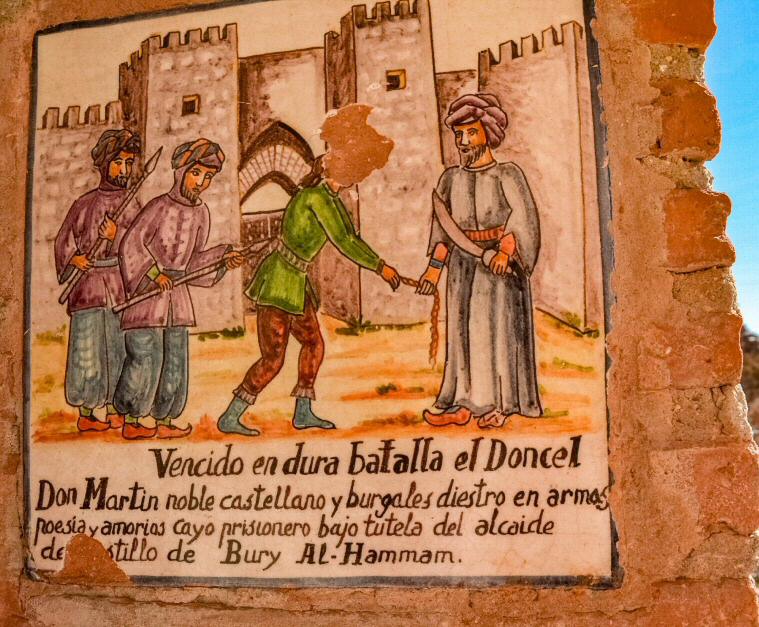 Vencido en dura batalla el Doncel
Don Martin noble castellano y burgales diestro en armas
poesia y amorios cayo prisionero bajo tutela del alcaide
de Bury Al-Hammam.